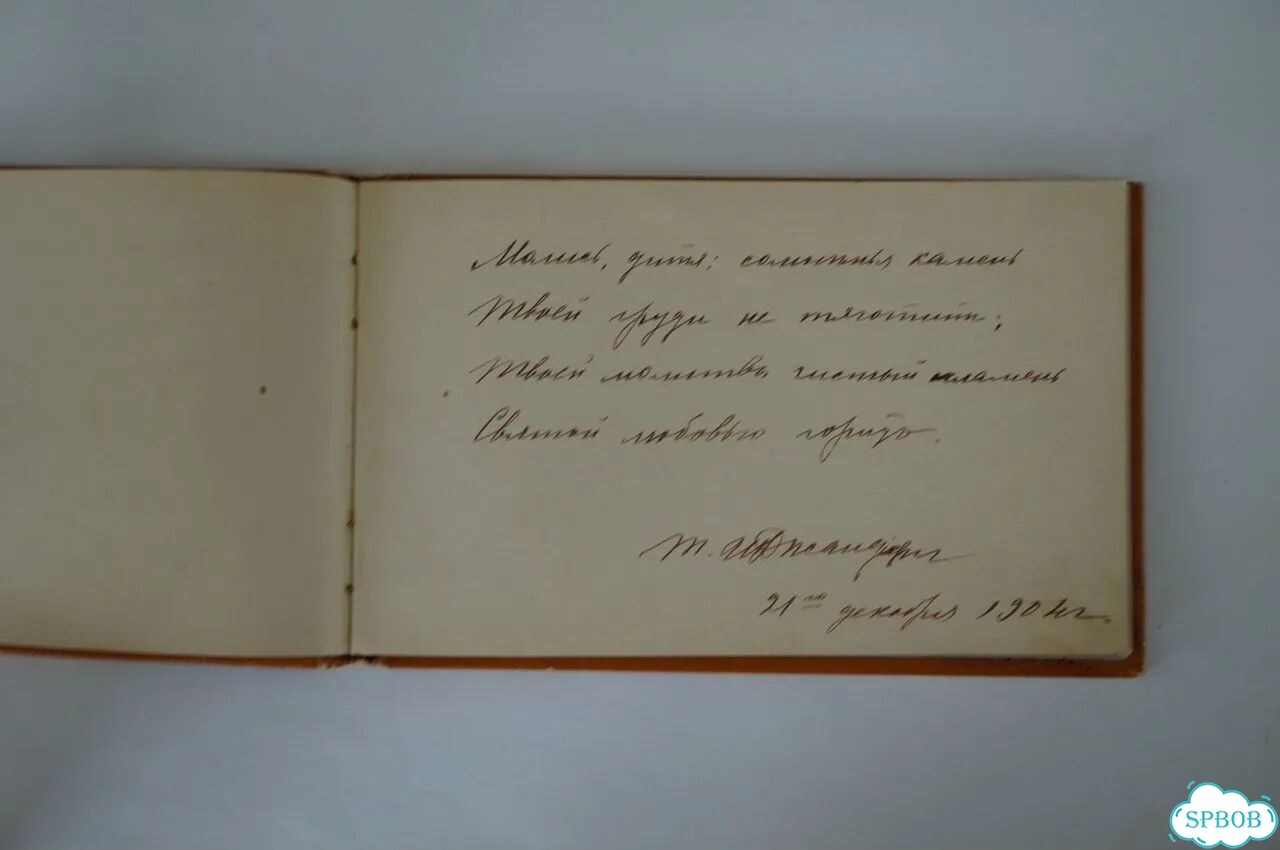 Молись, дитя: сомнѣнья камень
Твоей груди не тяготит;
Твоей молитвы чистый пламень
Святой любовью горитъ.
Т.
21го декабря 1904г.
SPBOB